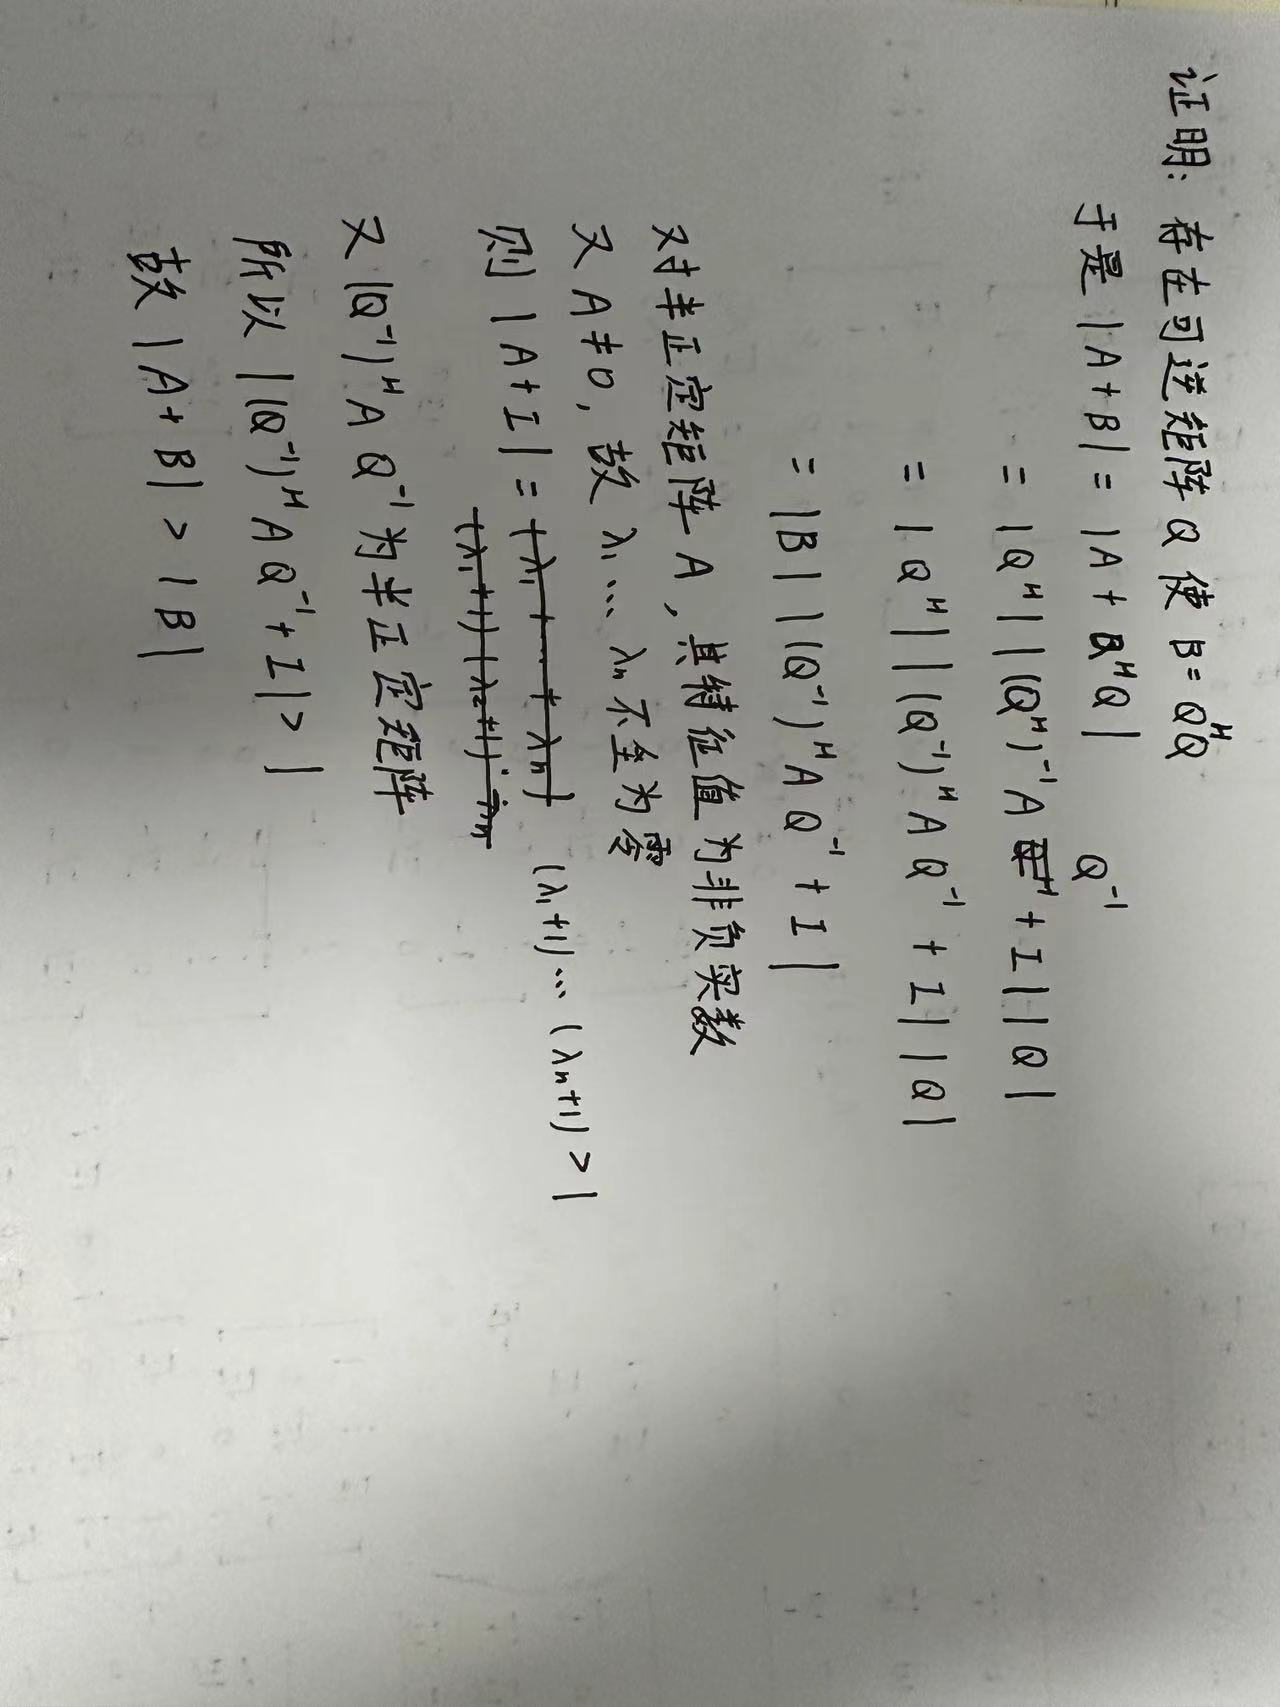 证明: 存在可逆矩阵 Q 使 B = Q^H Q
于是 |A+B| = |A + Q^H Q|
= |Q^H| |(Q^H)^-1 A Q^-1 + I| |Q|
= |Q^H| |(Q^-1)^H A Q^-1 + I| |Q|
= |B| |(Q^-1)^H A Q^-1 + I|
对半正定矩阵 A, 其特征值为非负实数
又 A ≠ 0, 故 λ1 ... λn 不全为零
则 |A+I| = (λ1+1) ... (λn+1) > 1
又 (Q^-1)^H A Q^-1 为半正定矩阵
所以 |(Q^-1)^H A Q^-1 + I| > 1
故 |A+B| > |B|